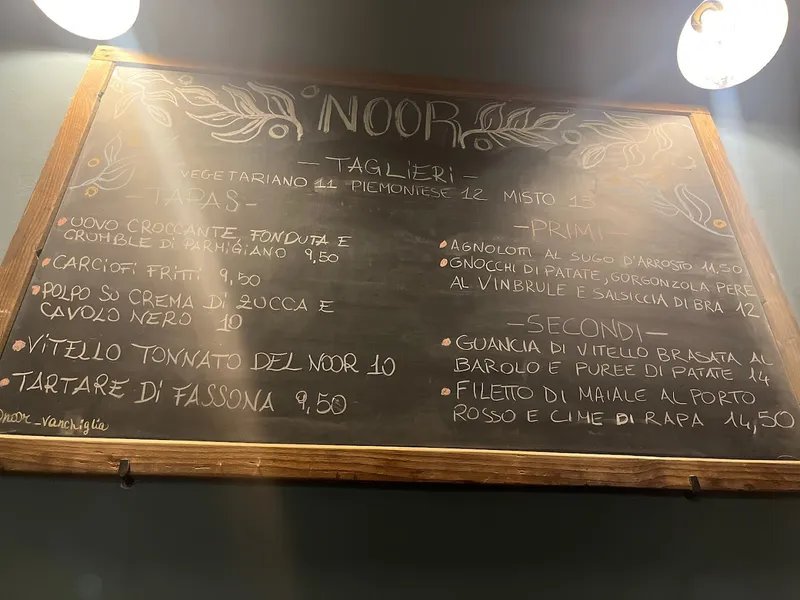 NOOR
- TAGLIERI -
VEGETARIANO 11 PIEMONTESE 12 MISTO 13
- TAPAS -
UOVO CROCCANTE, FONDUTA E
CRUMBLE DI PARMIGIANO 9,50
CARCIOFI FRITTI 9,50
POLPO SU CREMA DI ZUCCA E
CAVOLO NERO 10
VITELLO TONNATO DEL NOOR 10
TARTARE DI FASSONA 9,50
@noor_vanchiglia
- PRIMI -
AGNOLOTTI AL SUGO D'ARROSTO 11,50
GNOCCHI DI PATATE, GORGONZOLA PERE
AL VINBRULE E SALSICCIA DI BRA 12
- SECONDI -
GUANCIA DI VITELLO BRASATA AL
BAROLO E PUREE DI PATATE 14
FILETTO DI MAIALE AL PORTO
ROSSO E CIME DI RAPA 14,50